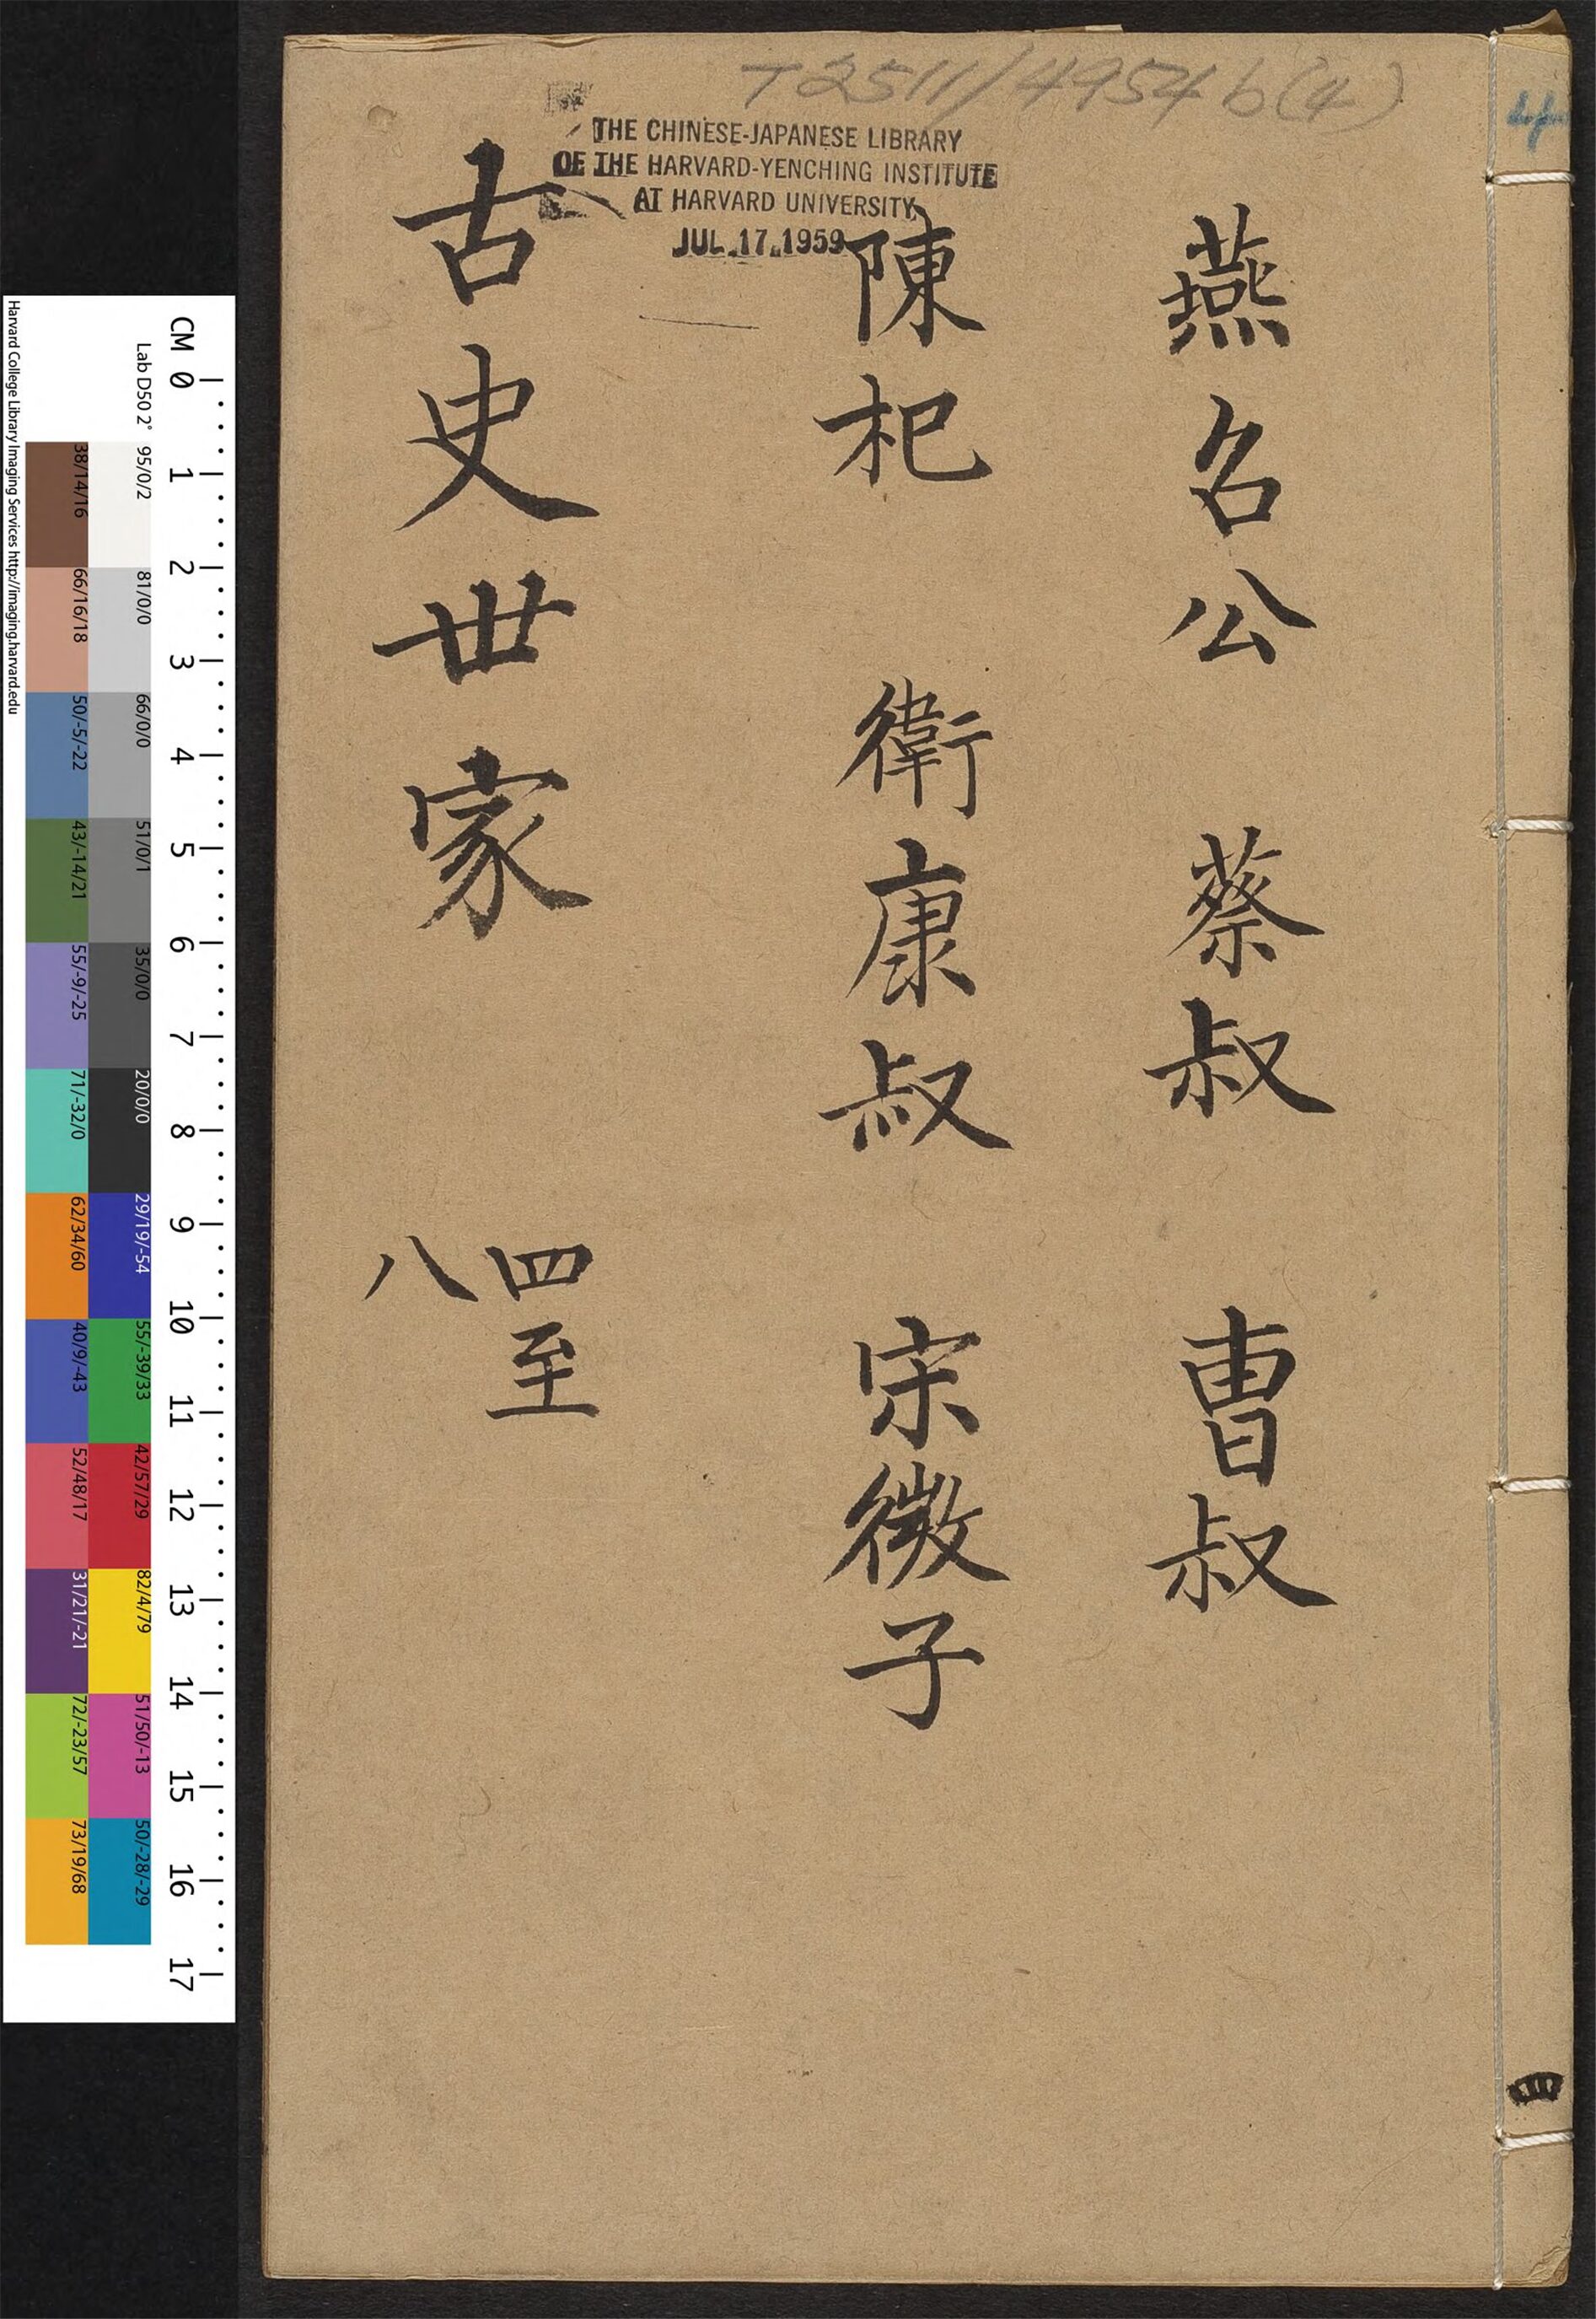 T2511/4954b(4)
4
THE CHINESE-JAPANESE LIBRARY
OF THE HARVARD-YENCHING INSTITUTE
AT HARVARD UNIVERSITY
JUL 17 1959
燕名公 蔡叔 曹叔
陳杞 衛康叔 宋微子
古史世家 四至
八
四
CM 0 1 2 3 4 5 6 7 8 9 10 11 12 13 14 15 16 17
Lab D50 2° 95/0/2 81/0/0 66/0/0 51/0/1 35/0/0 20/0/0 29/19/-54 55/-39/33 42/57/29 82/4/79 51/50/-13 50/-28/-29
38/14/16 66/16/18 50/-5/-22 43/-14/21 55/-9/-25 71/-32/0 62/34/60 40/9/-43 52/48/17 31/21/-21 72/-23/57 73/19/68
Harvard College Library Imaging Services http://imaging.harvard.edu